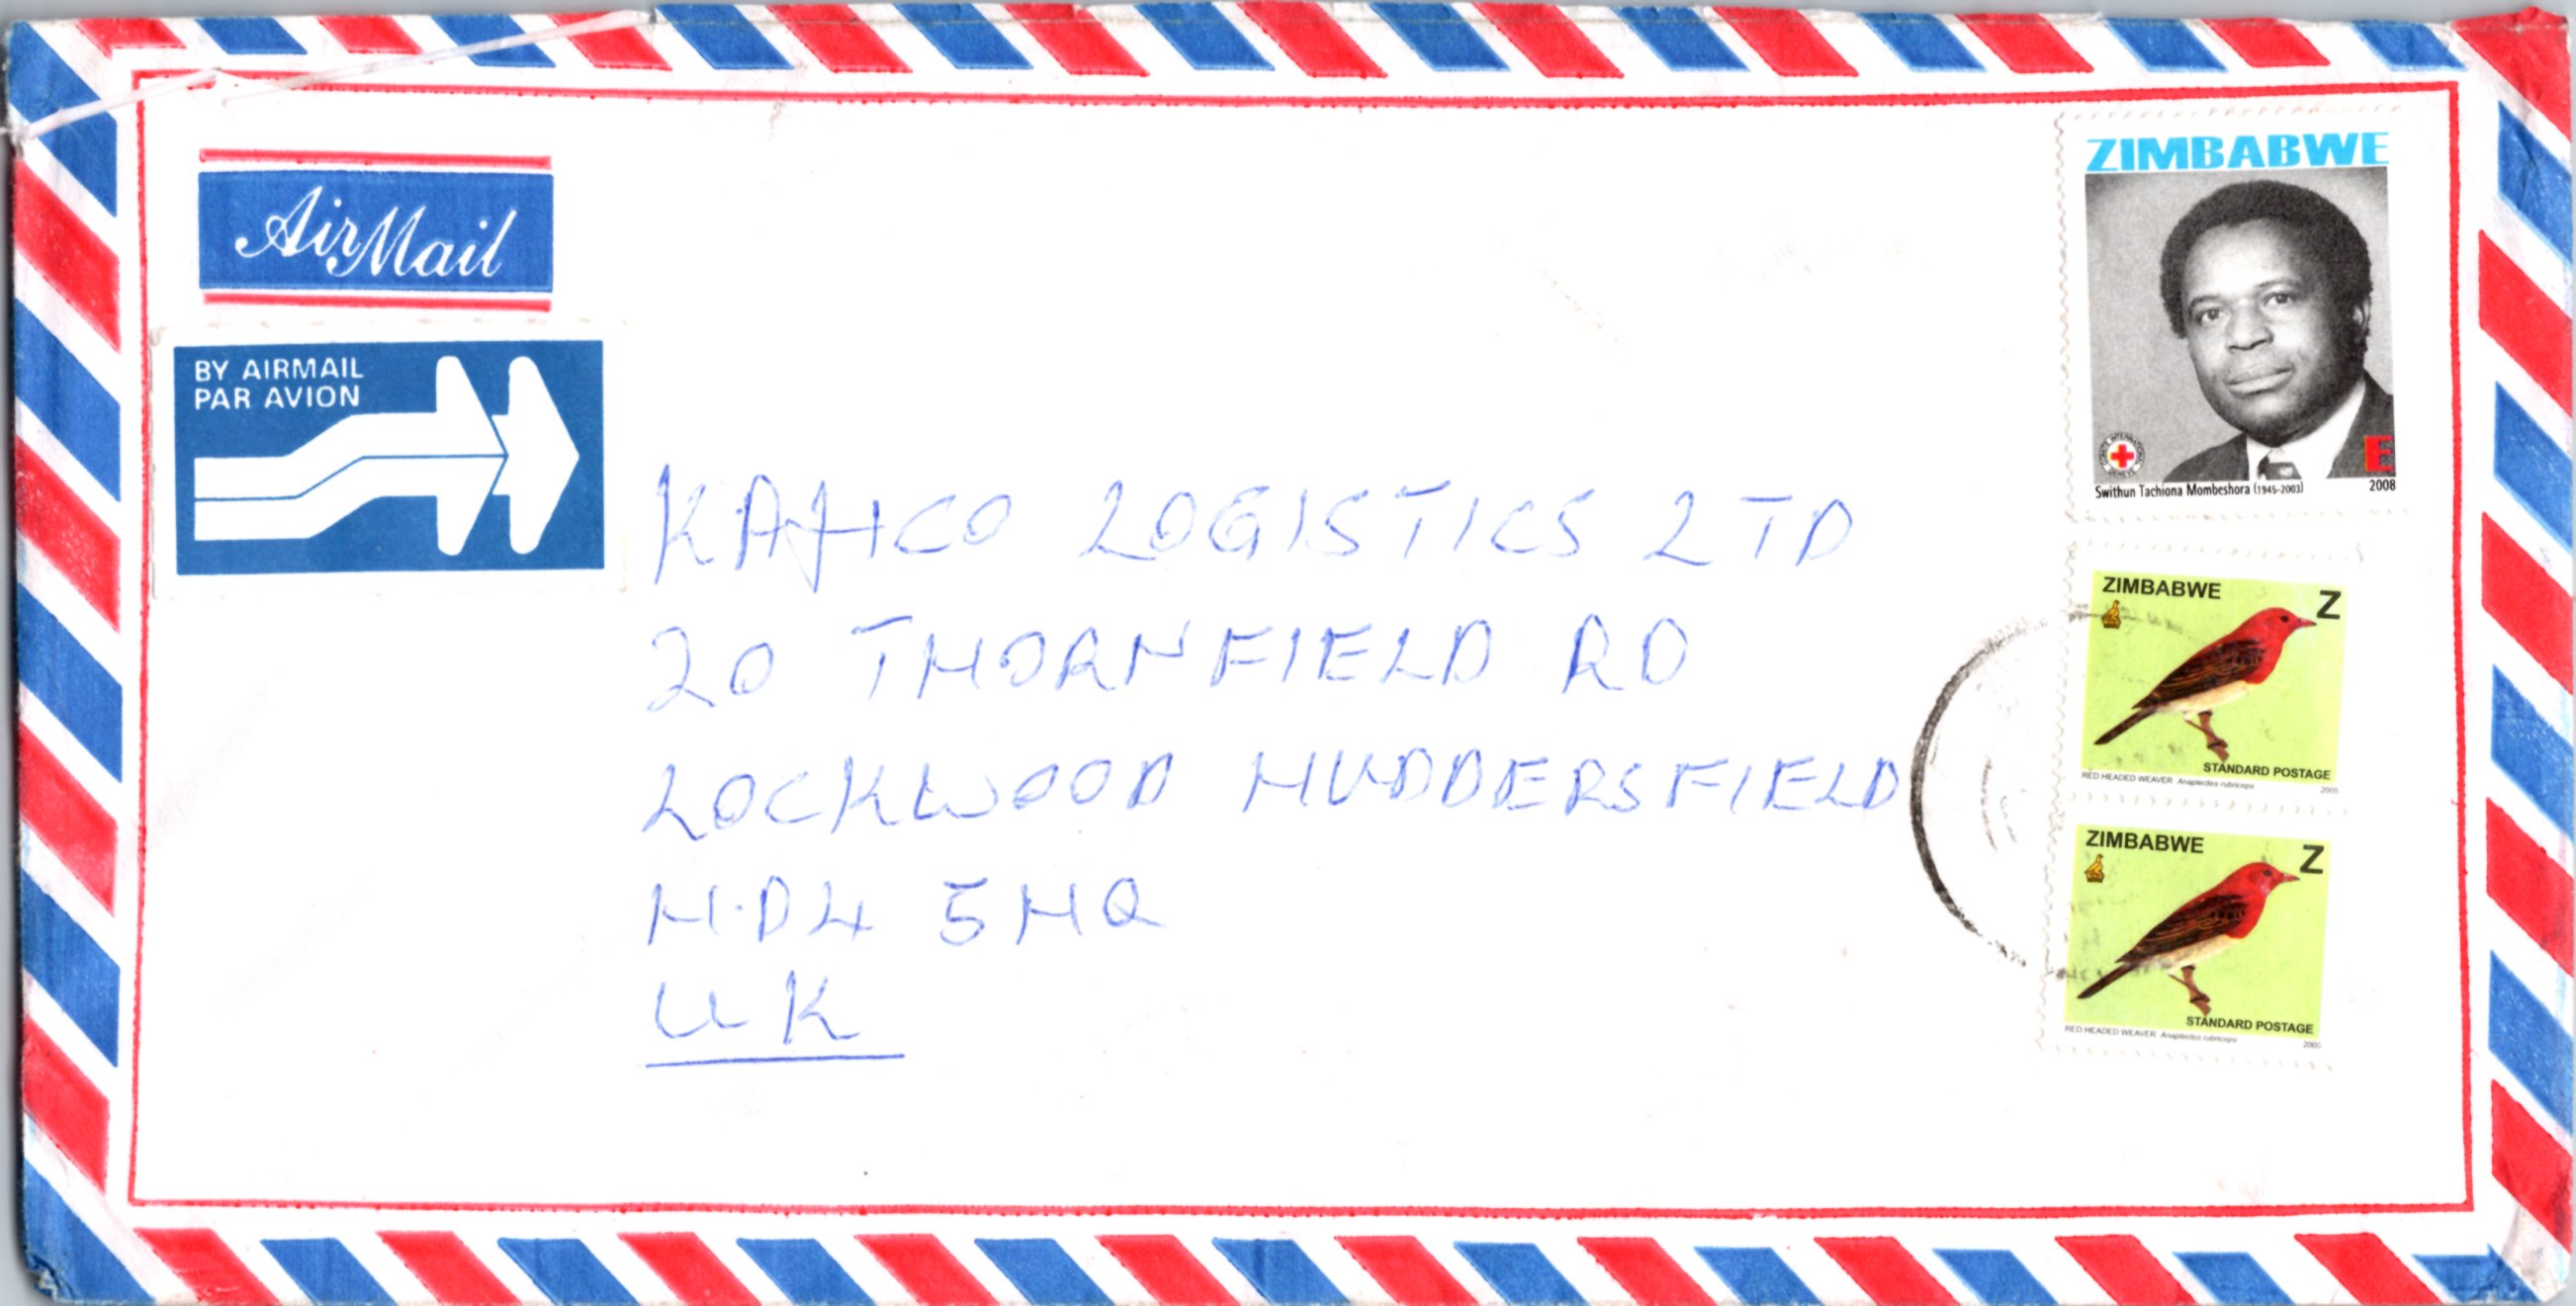 AirMail
BY AIRMAIL
PAR AVION
ZIMBABWE
E
Swithun Tachiona Mombeshora (1945-2003) 2008
LOGISTICS LTD
20 THORNFIELD RD
LOCKWOOD HUDDERSFIELD
H.D4 5HQ
UK
ZIMBABWE Z
STANDARD POSTAGE
RED HEADED WEAVER Anaplectes rubriceps 2005
ZIMBABWE Z
STANDARD POSTAGE
RED HEADED WEAVER Anaplectes rubriceps 2005